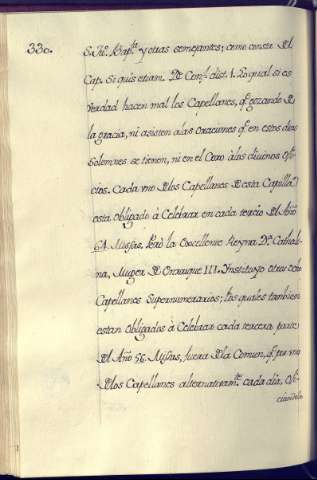 330.
S. Jn.º Bap.ta y otras semejantes; como consta Del
Cap. Si quis etiam. De Con.s dist. 1. Lo qual si es
verdad hacen mal los Capellanes, q.e gozando D.
la gracia, ni asisten a las Oraciones q.e en estos dias
Solemnes se tienen, ni en el Coro à las divinos Ofi-
cios. Cada uno De los Capellanes D esta Capilla
esta obligado à Celebrar en cada tercio Del Año
64 Missas. Pero la Excellente Reyna D.ª Cathali-
na, Muger D Enrrique III. Instituyo otros ocho
Capellanes Supernumerarios; los quales tambien
estan obligados à Celebrar cada tercera parte
Del Año 56. Missas, fuera De la Comun, q.e por uno
De los Capellanes alternativam.te cada dia. Ofi-
ciandola